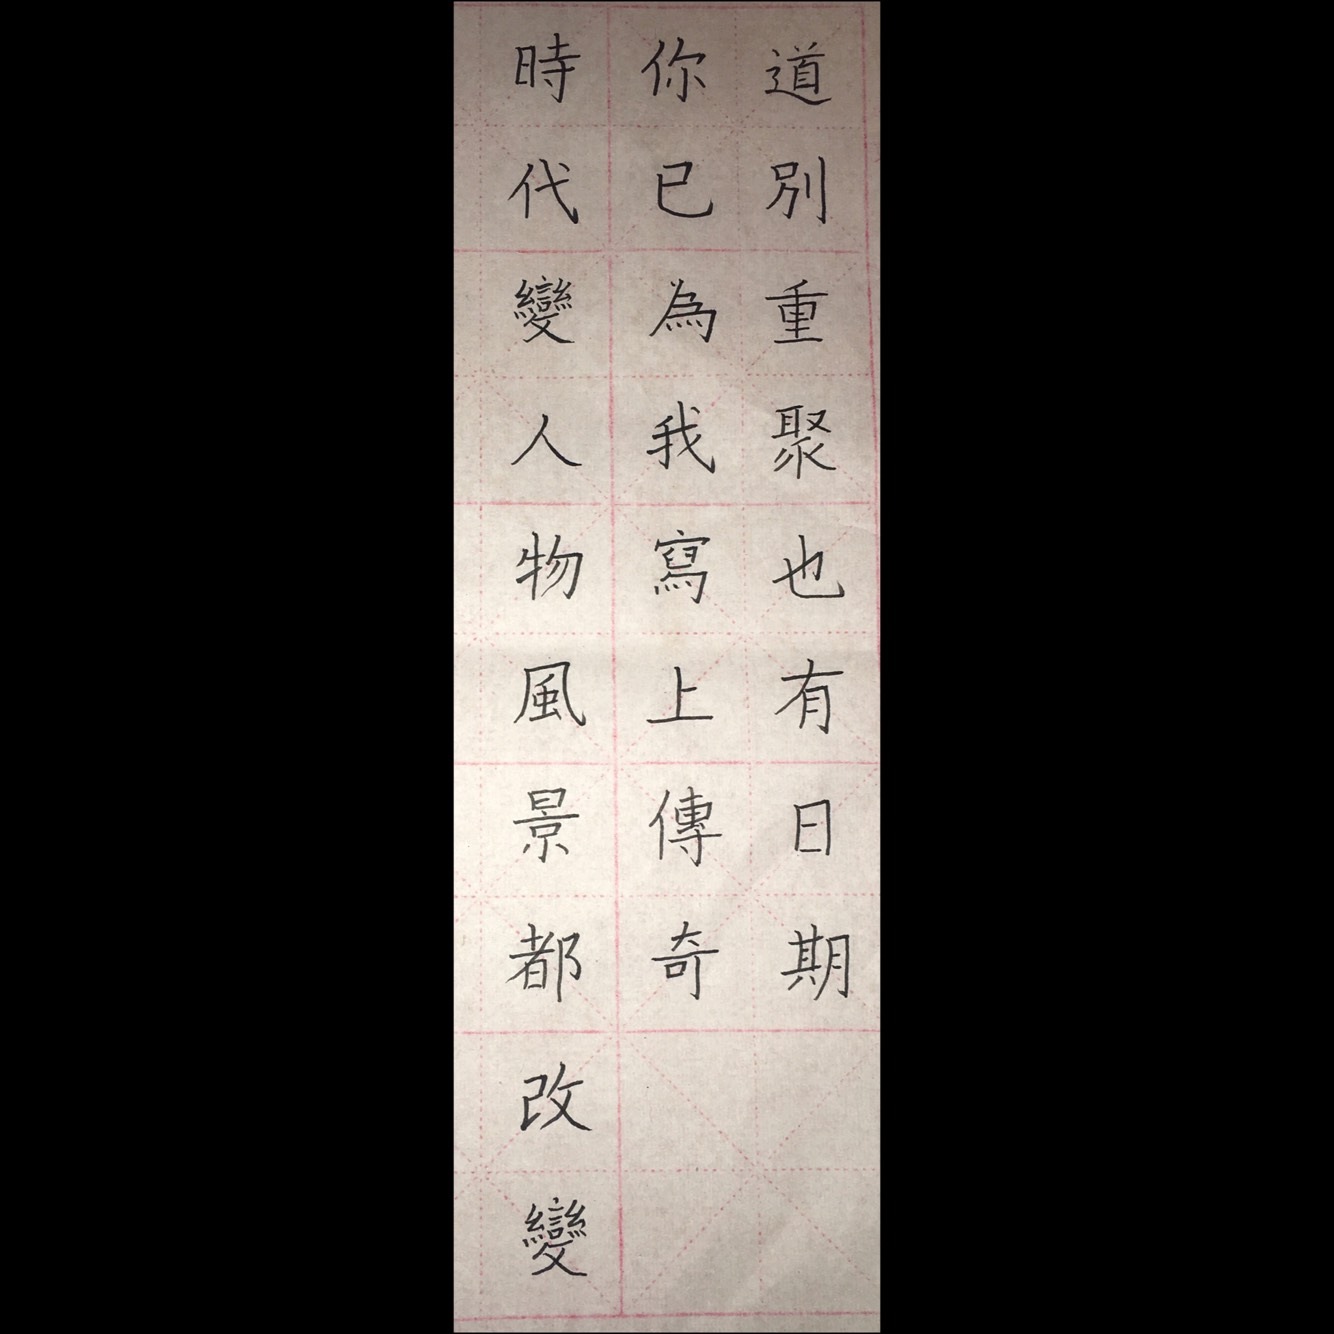 道別重聚也有日期
你已為我寫上傳奇
時代變人物風景都改變